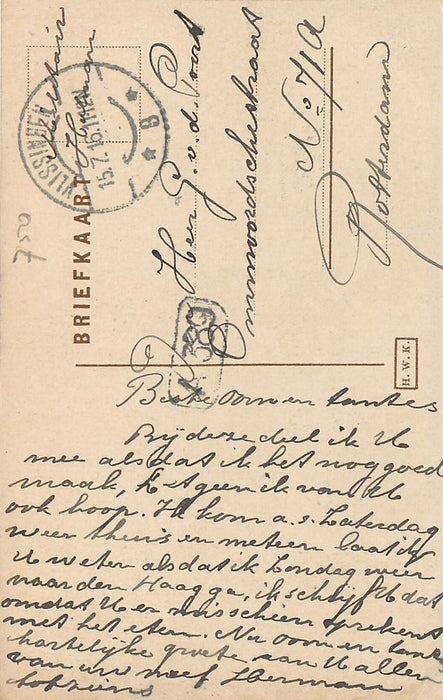 BRIEFKAART
Militair
Herman
VLISSINGEN
15.7.16.
B
750
Heer G. v. d. Poort
Ommoordschestraat
No 71A
Rotterdam
389
H.W.K.
Beste Oom en tantes
Bij deze deel ik U
mee als dat ik het nog goed
maak, Het geen ik van U
ook hoop. Ik kom a.s. Zaterdag
weer thuis en meteen laat ik
U weten als dat ik Zondag weer
naar den Haag ga, ik schrijf U dat
omdat U er misschien op rekent
met het eten. Nu oom en tante
hartelijke groete aan U allen
van uw neef Herman
tot ziens